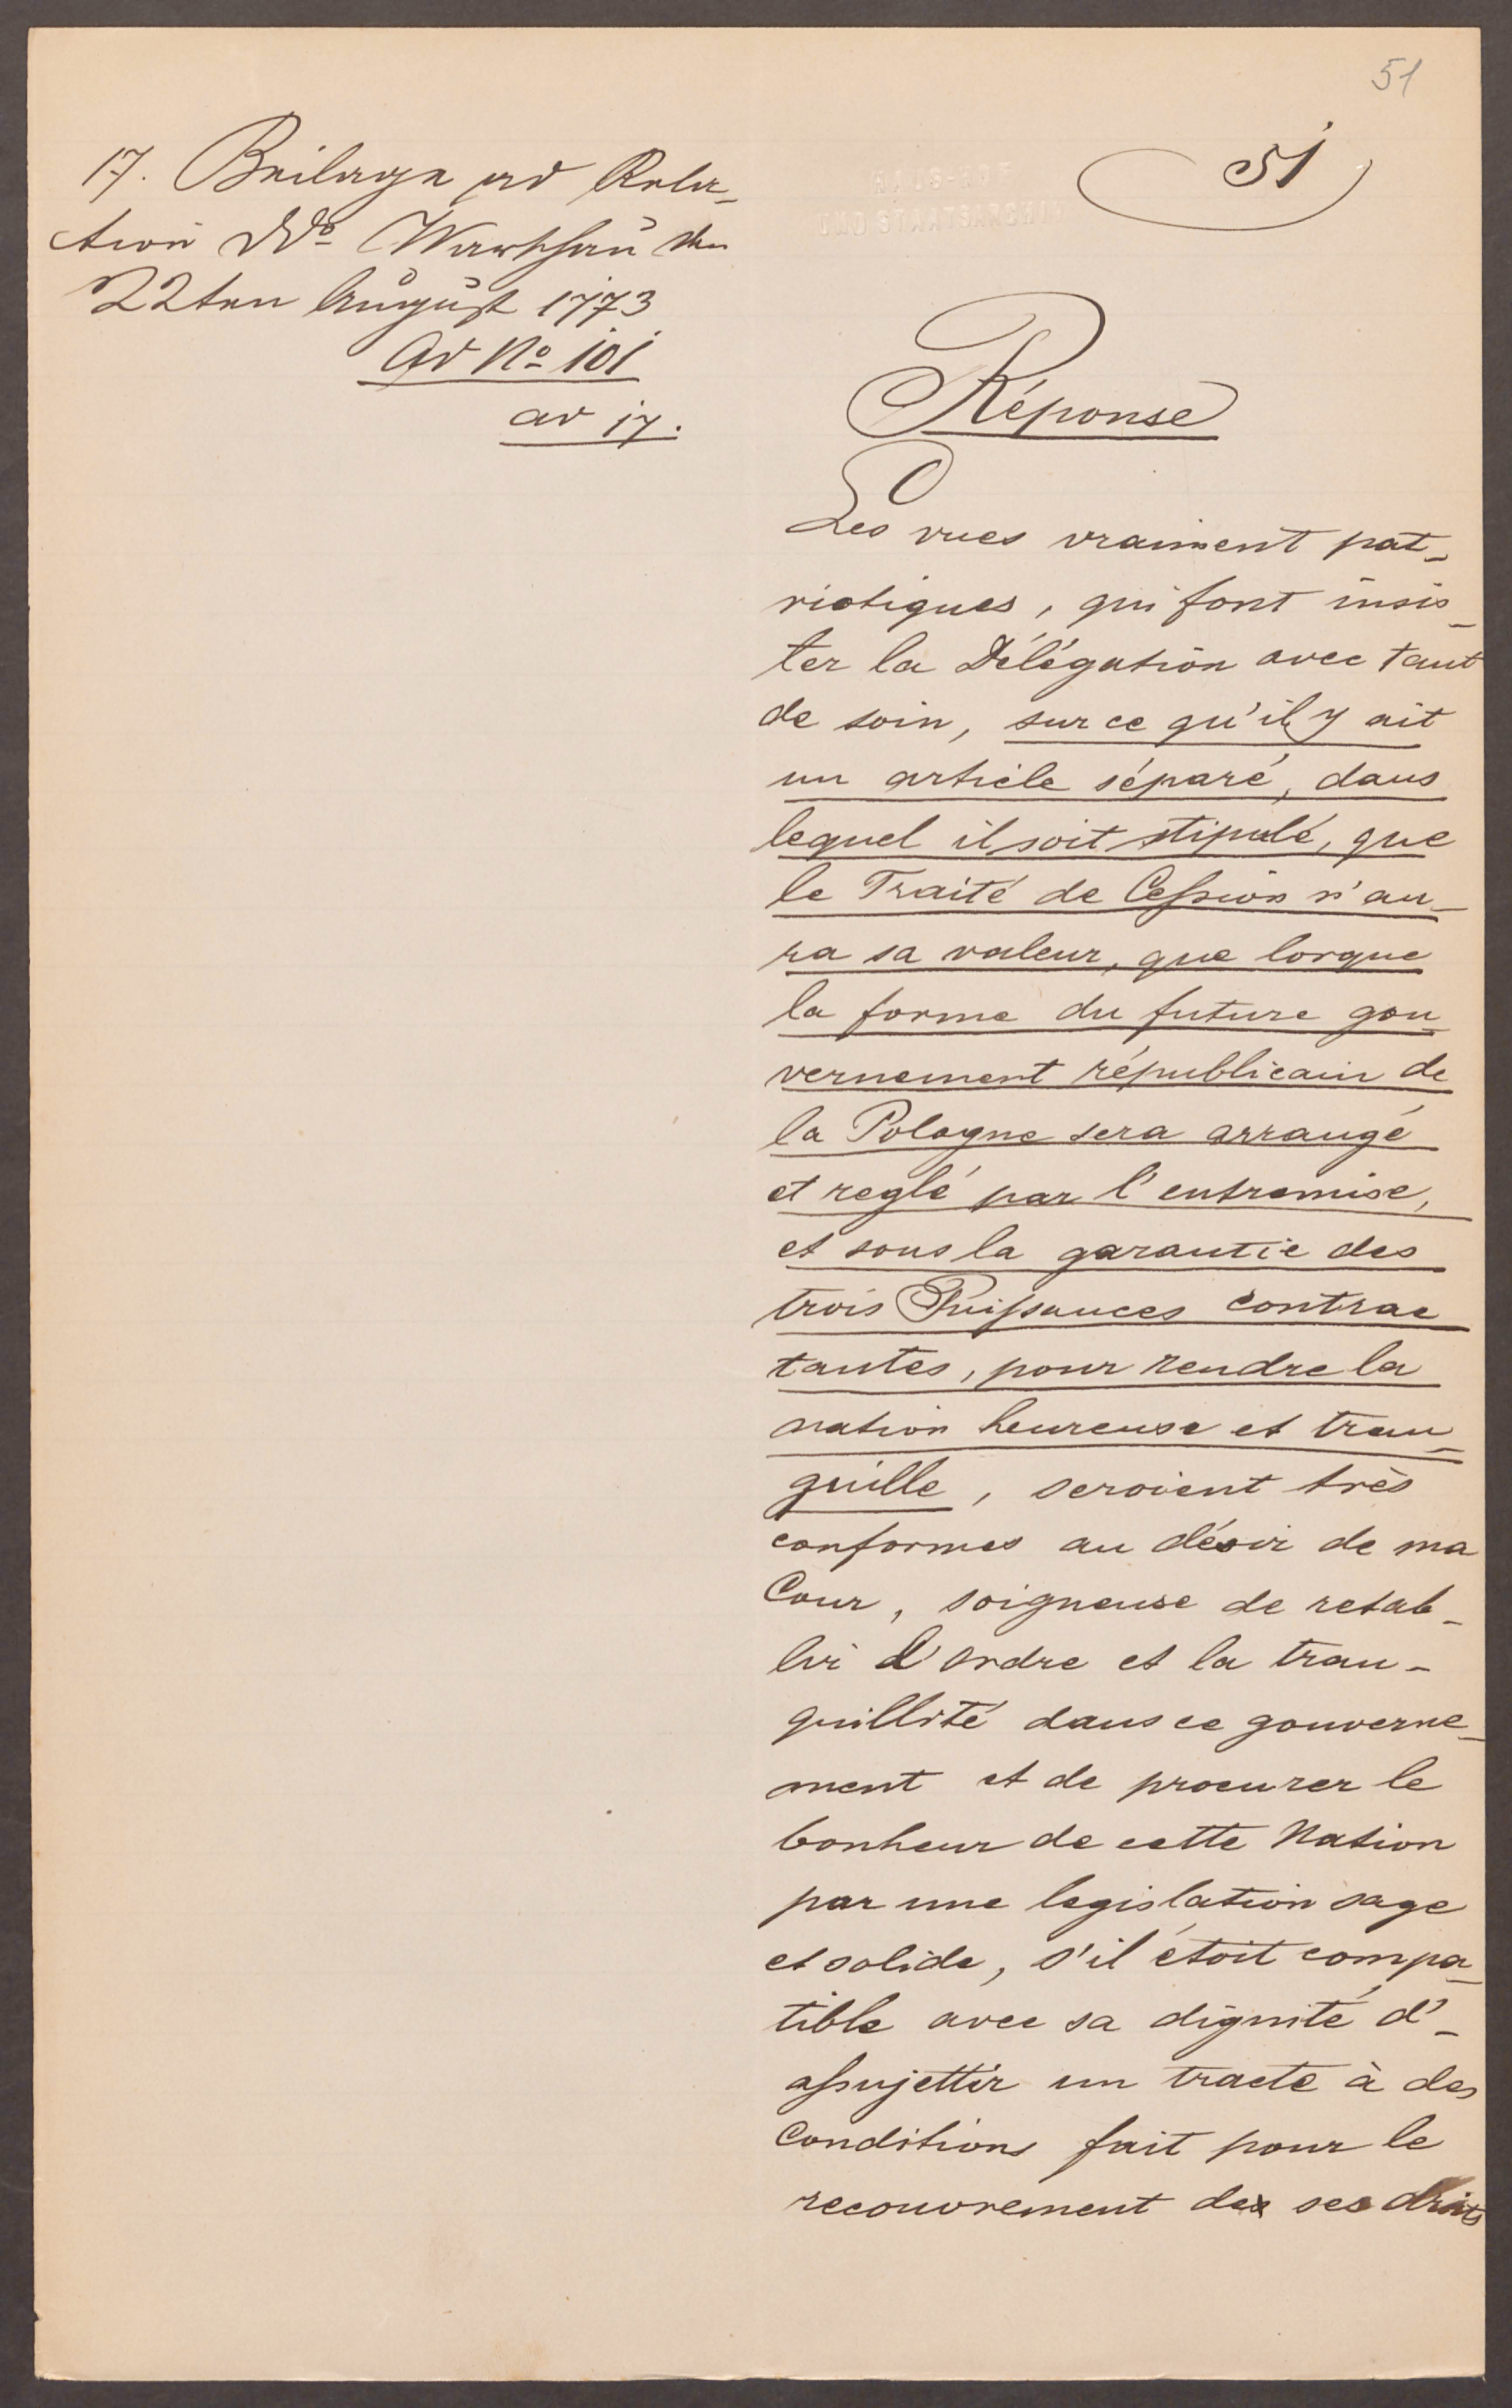 51
17. Beilage ad Rela-
tion Ddo Warschau den
22ten August 1773
Ad No 101
ad 17.
51
HAUS-HOF
UND STAATSARCHIV
Réponse
Les vues vraiment pat-
riotiques, qui font insis-
ter la Délégation avec tant
de soin, sur ce qu'il y ait
un article séparé, dans
lequel il soit stipulé, que
le Traité de Cession n'au-
ra sa valeur, que lorque
la forme du future gou-
vernement républicain de
la Pologne sera arrangé
et reglé par l'entremise,
et sous la garantie des
trois Puissances contrac
tantes, pour rendre la
nation heureuse et tran-
quille, seroient très
conformes au désir de ma
Cour, soigneuse de retab-
lir l'ordre et la tran-
quillité dans ce gouverne-
ment et de procurer le
bonheur de cette Nation
par une legislation sage
et solide, s'il étoit compa-
tible avec sa dignité d'-
assujettir un tracte à des
Conditions fait pour le
recouvrement de ses droits